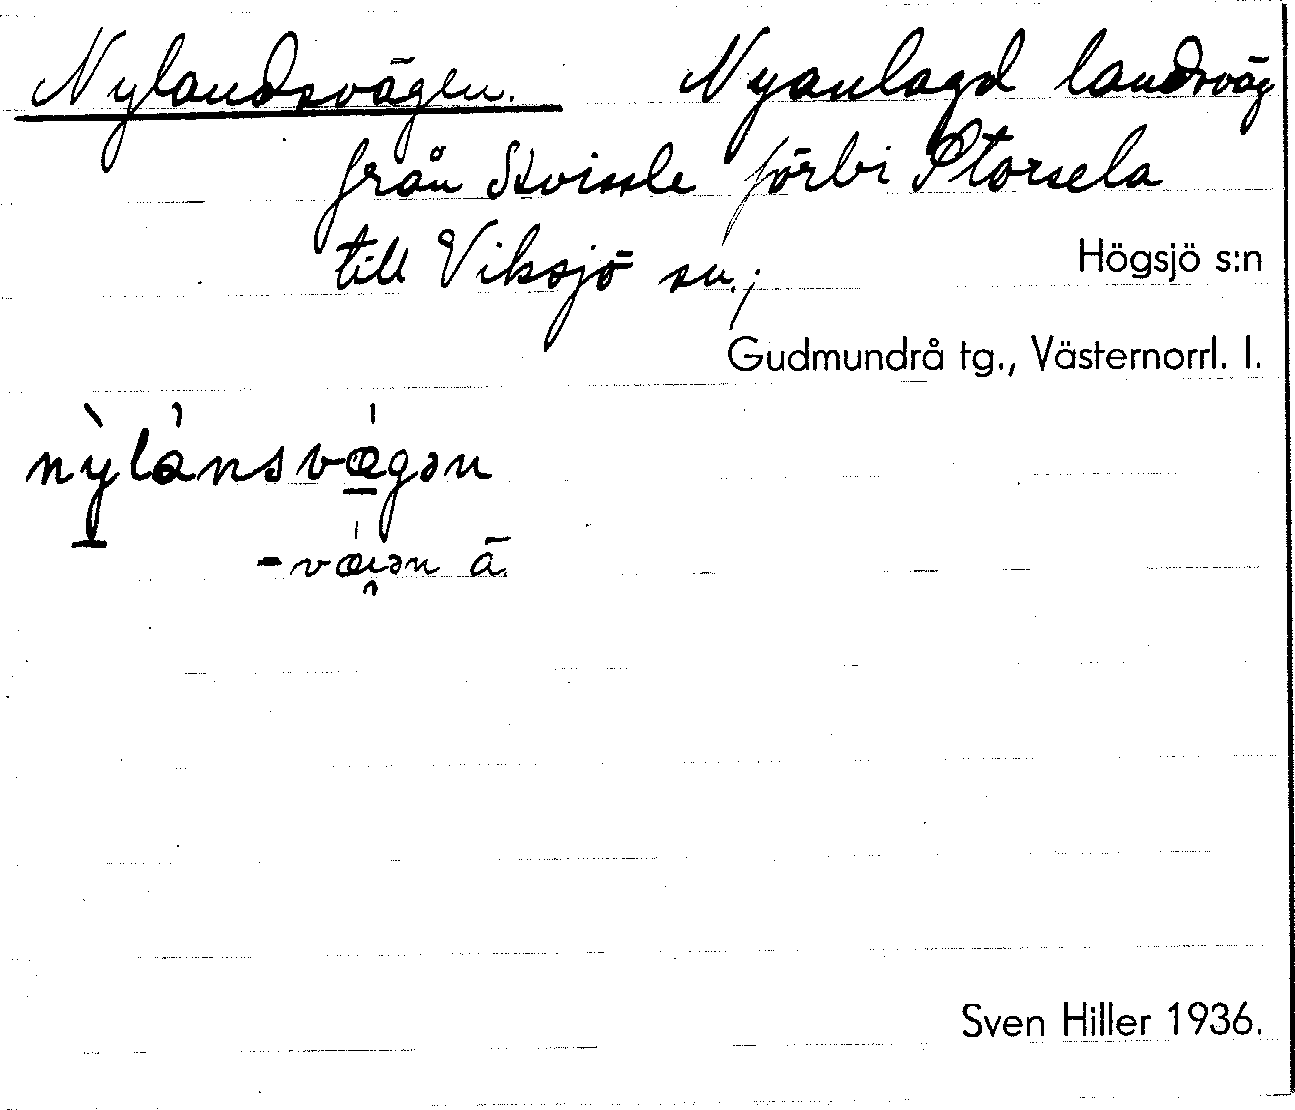 Nylandsvägen. Nyanlagd landsväg
från Svissle förbi Storsela
till Viksjö sn.;
Högsjö s:n
Gudmundrå tg., Västernorrl. l.
nỳlánsvǽgən
-vǽi̯ən ä.
Sven Hiller 1936.